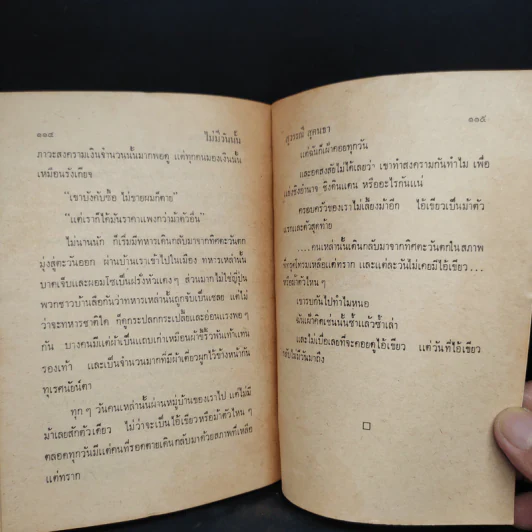 ๑๑๔ ไม่มีวันนั้น
ภาวะสงครามเงินจำนวนนั้นมากพอดู แต่ทุกคนมองเงินนั้น
เหมือนรังเกียจ
"เขาบังคับซื้อ ไม่ขายผมก็ตาย"
"แต่เราก็ได้มันราคาแพงกว่าม้าตัวอื่น"
ไม่นานนัก ก็เริ่มมีทหารเดินกลับมาจากทิศตะวันตก
มุ่งสู่ตะวันออก ผ่านบ้านเราเข้าไปในเมือง ทหารเหล่านั้น
บาดเจ็บและผอมโซเป็นฝรั่งหัวแดง ๆ ส่วนมากไม่ใช่ญี่ปุ่น
พวกชาวบ้านลือกันว่าทหารเหล่านี้ถูกจับเป็นเชลย แต่ไม่
ว่าจะทหารชาติใด ก็ดูกระปลกกระเปลี้ยและอ่อนแรงพอ ๆ
กัน บางคนมีแต่ผ้าเป็นแถบเก่าเหมือนผ้าขี้ริ้วพันเท้าแทน
รองเท้า และเป็นจำนวนมากที่มีผ้าเตี่ยวผูกไว้ข้างหน้ากัน
ทุเรศนัยน์ตา
ทุก ๆ วันคนเหล่านั้นผ่านหมู่บ้านของเราไป แต่ไม่มี
ม้าเลยสักตัวเดียว ไม่ว่าจะเป็นไอ้เขียวหรือม้าตัวไหน ๆ
ตลอดทุกวันมีแต่คนที่รอดตายเดินกลับมาด้วยสภาพที่เหลือ
แต่ซาก
สุวรรณี สุคนธา ๑๑๕
แต่ฉันก็เฝ้าคอยทุกวัน
และอดสงสัยไม่ได้เลยว่า เขาทำสงครามกันทำไม เพื่อ
แย่งชิงอำนาจ ชิงดินแดน หรืออะไรกันแน่
ครอบครัวของเราไม่เลี้ยงม้าอีก ไอ้เขียวเป็นม้าตัว
แรกและตัวสุดท้าย
....คนเหล่านั้นเดินกลับมาจากทิศตะวันตกในสภาพ
ชำรุดโทรมเหลือแต่ซาก และแต่ละวันไม่เคยมีไอ้เขียว....
หรือม้าตัวไหน ๆ
เขารบกันไปทำไมหนอ
ฉันเฝ้าคิดเช่นนั้นซ้ำแล้วซ้ำเล่า
และไม่เบื่อเลยที่จะคอยดูไอ้เขียว แต่วันที่ไอ้เขียว
กลับไม่มีวันมาถึง